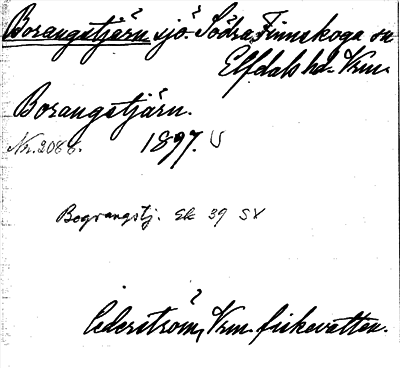 Borangstjärn sjö. Södra Finnskoga sn
Elfdals hd. Vrm.
Borangstjärn.
Nr. 2088. 1897. U
Bograngstj. Ek 39 SV
Cederström, Vrm. fiskevatten.